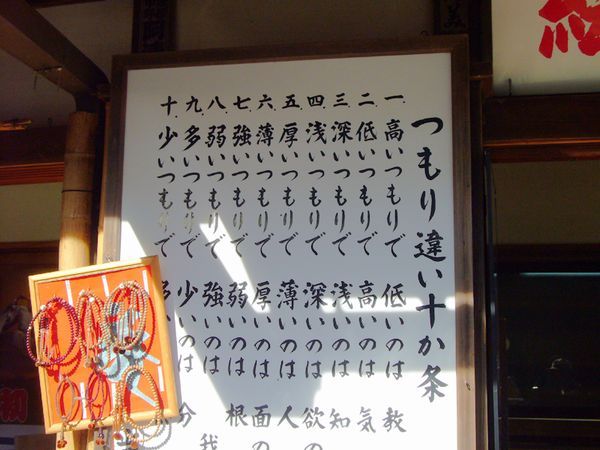 つもり違い十か条
一. 高いつもりで 低いのは 教
二. 低いつもりで 高いのは 気
三. 深いつもりで 浅いのは 知
四. 浅いつもりで 深いのは 欲の
五. 厚いつもりで 薄いのは 人
六. 薄いつもりで 厚いのは 面の
七. 強いつもりで 弱いのは 根
八. 弱いつもりで 強いのは 我
九. 多いつもりで 少いのは 分
十. 少いつもりで 多